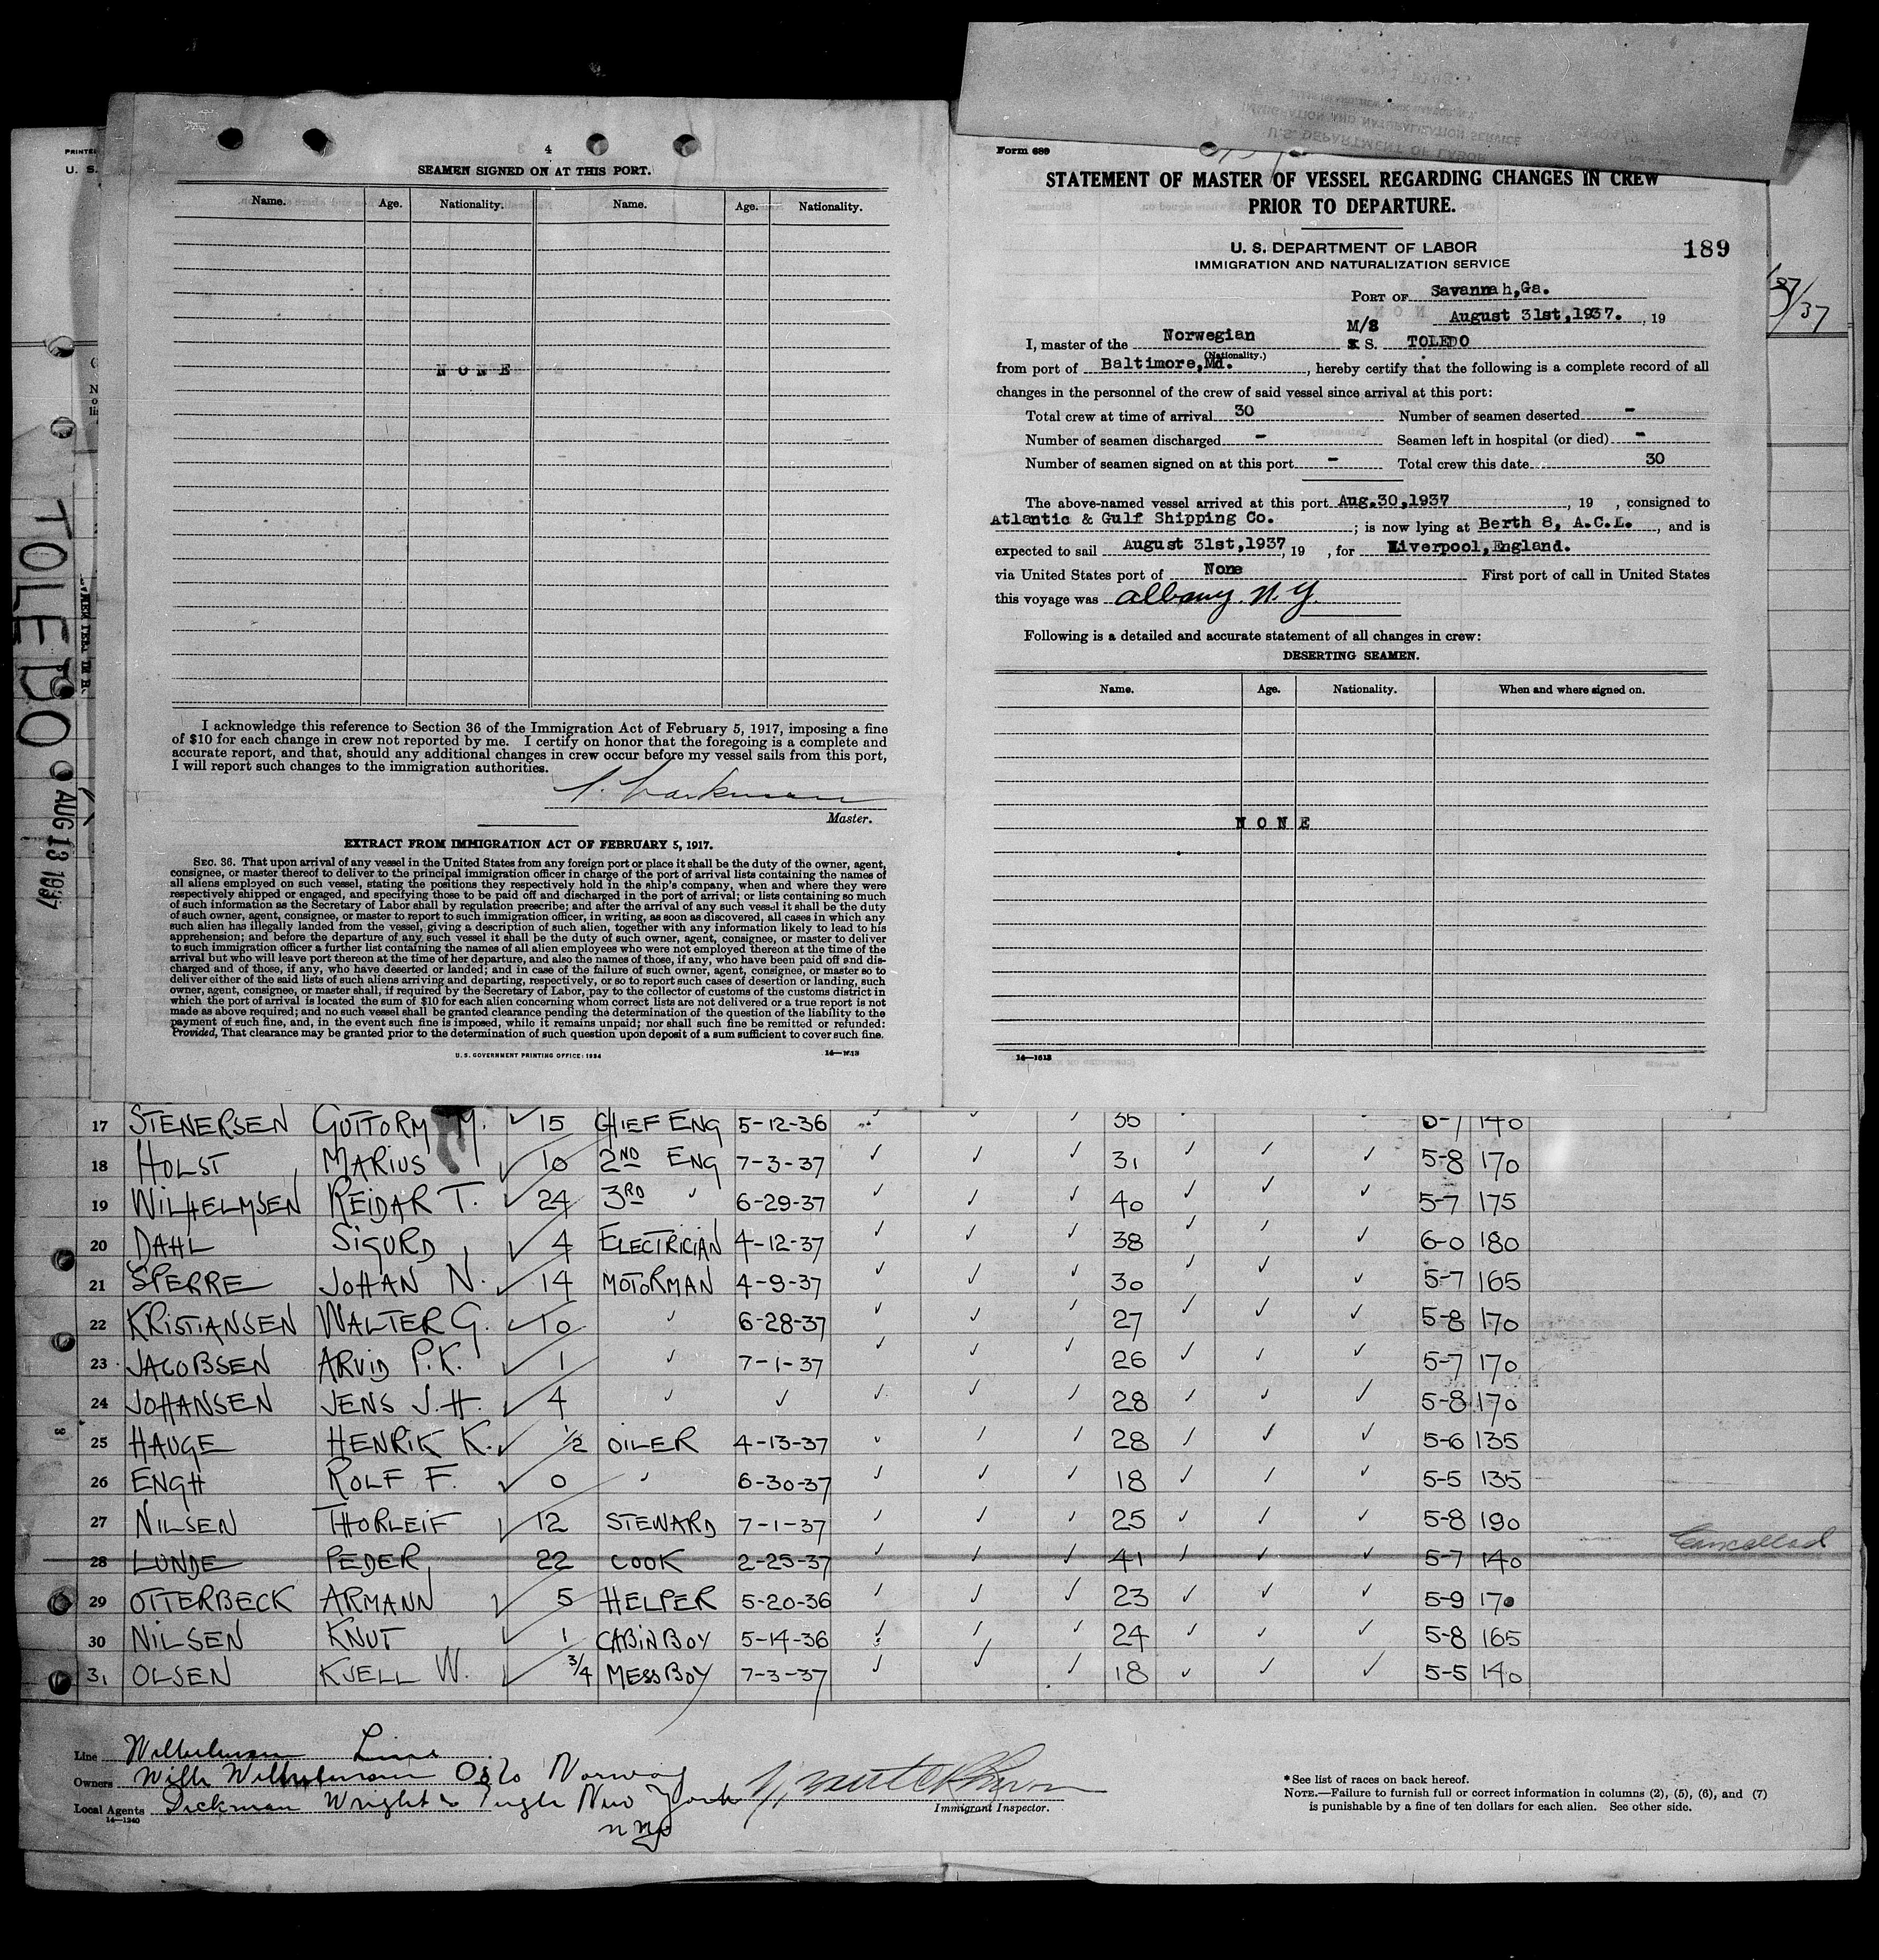 4
SEAMEN SIGNED ON AT THIS PORT.
Name. Age. Nationality. Name. Age. Nationality.
NONE
I acknowledge this reference to Section 36 of the Immigration Act of February 5, 1917, imposing a fine
of $10 for each change in crew not reported by me. I certify on honor that the foregoing is a complete and
accurate report, and that, should any additional changes in crew occur before my vessel sails from this port,
I will report such changes to the immigration authorities.
Master.
EXTRACT FROM IMMIGRATION ACT OF FEBRUARY 5, 1917.
SEC. 36. That upon arrival of any vessel in the United States from any foreign port or place it shall be the duty of the owner, agent,
consignee, or master thereof to deliver to the principal immigration officer in charge of the port of arrival lists containing the names of
all aliens employed on such vessel, stating the positions they respectively hold in the ship's company, when and where they were
respectively shipped or engaged, and specifying those to be paid off and discharged in the port of arrival; or lists containing so much
of such information as the Secretary of Labor shall by regulation prescribe; and after the arrival of any such vessel it shall be the duty
of such owner, agent, consignee, or master to report to such immigration officer, in writing, as soon as discovered, all cases in which any
such alien has illegally landed from the vessel, giving a description of such alien, together with any information likely to lead to his
apprehension; and before the departure of any such vessel it shall be the duty of such owner, agent, consignee, or master to deliver
to such immigration officer a further list containing the names of all alien employees who were not employed thereon at the time of the
arrival but who will leave port thereon at the time of her departure, and also the names of those, if any, who have been paid off and dis-
charged and of those, if any, who have deserted or landed; and in case of the failure of such owner, agent, consignee, or master so to
deliver either of the said lists of such aliens arriving and departing, respectively, or so to report such cases of desertion or landing, such
owner, agent, consignee, or master shall, if required by the Secretary of Labor, pay to the collector of customs of the customs district in
which the port of arrival is located the sum of $10 for each alien concerning whom correct lists are not delivered or a true report is not
made as above required; and no such vessel shall be granted clearance pending the determination of the question of the liability to the
payment of such fine, and, in the event such fine is imposed, while it remains unpaid; nor shall such fine be remitted or refunded:
Provided, That clearance may be granted prior to the determination of such question upon deposit of a sum sufficient to cover such fine.
U. S. GOVERNMENT PRINTING OFFICE: 1934
Form 689
STATEMENT OF MASTER OF VESSEL REGARDING CHANGES IN CREW
PRIOR TO DEPARTURE.
U. S. DEPARTMENT OF LABOR
IMMIGRATION AND NATURALIZATION SERVICE
189
PORT OF Savannah,Ga.
August 31st,1937. , 19
I, master of the Norwegian M/S S. TOLEDO
(Nationality.)
from port of Baltimore,Md. , hereby certify that the following is a complete record of all
changes in the personnel of the crew of said vessel since arrival at this port:
Total crew at time of arrival 30 Number of seamen deserted -
Number of seamen discharged - Seamen left in hospital (or died) -
Number of seamen signed on at this port - Total crew this date 30
The above-named vessel arrived at this port Aug.30,1937 , 19 , consigned to
Atlantic & Gulf Shipping Co. ; is now lying at Berth 8, A.C.L. , and is
expected to sail August 31st,1937, 19 , for Liverpool,England.
via United States port of None First port of call in United States
this voyage was Albany. N.Y.
Following is a detailed and accurate statement of all changes in crew:
DESERTING SEAMEN.
Name. Age. Nationality. When and where signed on.
NONE
14—1613
TOLEDO
AUG 13 1937
17 STENERSEN GUTTORM M. 15 CHIEF ENG 5-12-36 35 5-7 140
18 HOLST MARIUS 10 2ND ENG 7-3-37 31 5-8 170
19 WILHELMSEN REIDAR T. 24 3RD " 6-29-37 40 5-7 175
20 DAHL SIGURD 4 ELECTRICIAN 4-12-37 38 6-0 180
21 SPERRE JOHAN N. 14 MOTORMAN 4-9-37 30 5-7 165
22 KRISTIANSEN WALTER G. 10 " 6-28-37 27 5-8 170
23 JACOBSEN ARVID P.K. 1 " 7-1-37 26 5-7 170
24 JOHANSEN JENS J.H. 4 " " 28 5-8 170
25 HAUGE HENRIK K. 1/2 OILER 4-13-37 28 5-6 135
26 ENGH ROLF F. 0 " 6-30-37 18 5-5 135
27 NILSEN THORLEIF 12 STEWARD 7-1-37 25 5-8 190
28 LUNDE PEDER 22 COOK 2-25-37 41 5-7 140 Cancelled
29 OTTERBECK ARMANN 5 HELPER 5-20-36 23 5-9 170
30 NILSEN KNUT 1 CABIN BOY 5-14-36 24 5-8 165
31 OLSEN KJELL W. 3/4 MESS BOY 7-3-37 18 5-5 140
Line Wilhelmsen Line
Owners Wilh Wilhelmsen Oslo Norway
Local Agents Dickman Wright & Pugh New York
14—1240
Immigrant Inspector.
*See list of races on back hereof.
NOTE.—Failure to furnish full or correct information in columns (2), (5), (6), and (7)
is punishable by a fine of ten dollars for each alien. See other side.